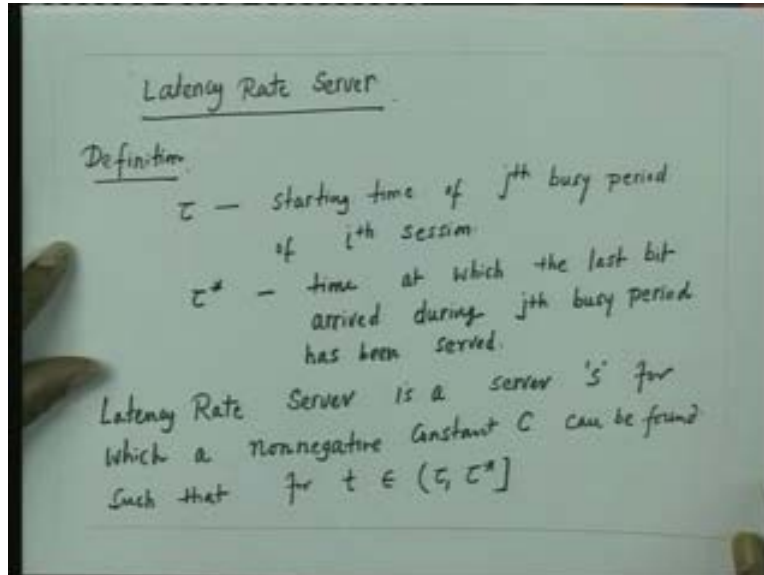 Latency Rate Server
Definition
τ — starting time of jth busy period
of ith session
τ* — time at which the last bit
arrived during jth busy period
has been served.
Latency Rate Server is a server 's' for
which a nonnegative constant C can be found
such that for t ∈ (τ, τ*]